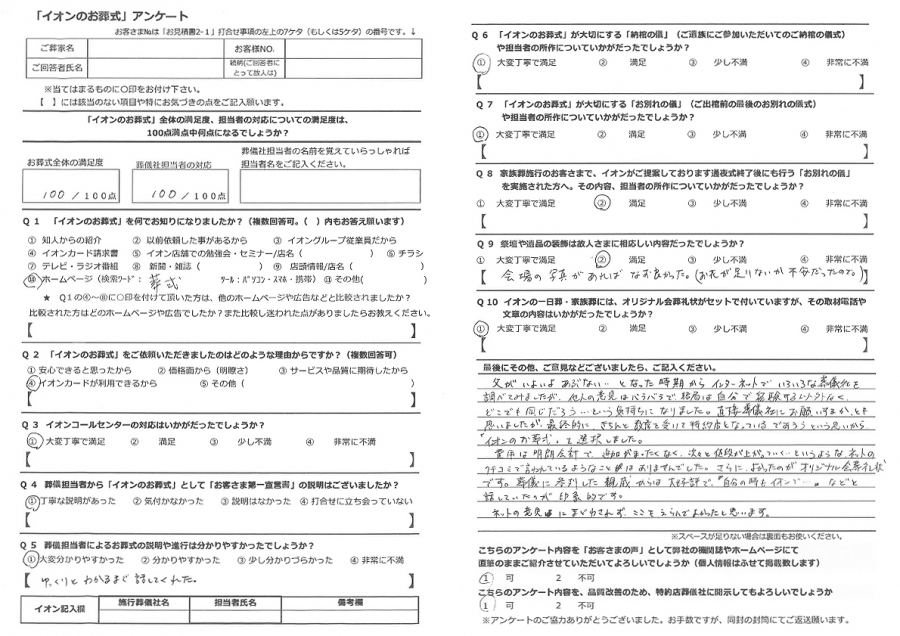 「イオンのお葬式」アンケート
お客さま№は「お見積書2-1」打合せ事項の左上の7ケタ（もしくは5ケタ）の番号です。↓
ご葬家名
お客様NO.
ご回答者氏名
続柄(ご回答者にとって故人は)
※当てはまるものに○印をお付け下さい。
【　】には該当のない項目や特にお気づきの点をご記入願います。
「イオンのお葬式」全体の満足度、担当者の対応についての満足度は、
100点満点中何点になるでしょうか？
お葬式全体の満足度
葬儀社担当者の対応
葬儀社担当者の名前を覚えていらっしゃれば
担当者名をご記入ください。
100 / 100点
100 / 100点
Q 1　「イオンのお葬式」を何でお知りになりましたか？（複数回答可。（　）内もお答え願います）
① 知人からの紹介　② 以前依頼した事があるから　③ イオングループ従業員だから
④ イオンカード請求書　⑤ イオン店舗での勉強会・セミナー/店名（　）　⑥ チラシ
⑦ テレビ・ラジオ番組　⑧ 新聞・雑誌（　）　⑨ 店頭情報/店名（　）
⑩ ホームページ（検索ワード：葬式　ツール：パソコン・スマホ・携帯）⑪ その他(　)
★ Q1の④～⑩に○印を付けて頂いた方は、他のホームページや広告などと比較されましたか？
比較された方はどのホームページや広告でしたか？また比較し迷われた点がありましたらお教えください。
【　】
Q 2　「イオンのお葬式」をご依頼いただきましたのはどのような理由からですか？（複数回答可）
① 安心できると思ったから　② 価格面から（明瞭さ）　③ サービスや品質に期待したから
④ イオンカードが利用できるから　⑤ その他（　）
【　】
Q 3　イオンコールセンターの対応はいかがだったでしょうか？
① 大変丁寧で満足　② 満足　③ 少し不満　④ 非常に不満
【　】
Q 4　葬儀担当者から「イオンのお葬式」として「お客さま第一宣言尊」の説明はございましたか？
① 丁寧な説明があった　② 気付かなかった　③ 説明はなかった　④ 打合せに立ち会っていない
【　】
Q 5　葬儀担当者によるお葬式の説明や進行は分かりやすかったでしょうか？
① 大変分かりやすかった　② 分かりやすかった　③ 少し分かりづらかった　④ 非常に不満
【 ゆっくりと わかるまで 話してくれた。 】
イオン記入欄
施行葬儀社名
担当者氏名
備考欄
Q 6　「イオンのお葬式」が大切にする「納棺の儀」（ご遺族にご参加いただいてのご納棺の儀式）
や担当者の所作についていかがだったでしょうか？
① 大変丁寧で満足　② 満足　③ 少し不満　④ 非常に不満
【　】
Q 7　「イオンのお葬式」が大切にする「お別れの儀」（ご出棺前の最後のお別れの儀式）
や担当者の所作についていかがだったでしょうか？
① 大変丁寧で満足　② 満足　③ 少し不満　④ 非常に不満
【　】
Q 8　家族葬施行のお客さまで、イオンがご提案しております通夜式終了後にも行う「お別れの儀」
を実施された方へ。その内容、担当者の所作についていかがだったでしょうか？
① 大変丁寧で満足　② 満足　③ 少し不満　④ 非常に不満
【　】
Q 9　祭壇や遺品の装飾は故人さまに相応しい内容だったでしょうか？
① 大変丁寧で満足　② 満足　③ 少し不満　④ 非常に不満
【 会場の写真があれば なお良かった。(お花が足りないか不安だったので。) 】
Q 10　イオンの一日葬・家族葬には、オリジナル会葬礼状がセットで付いていますが、その取材電話や
文章の内容はいかがだったでしょうか？
① 大変丁寧で満足　② 満足　③ 少し不満　④ 非常に不満
【　】
最後にその他、ご意見などございましたら、ご記入ください。
父がいよいよあぶない…となった時期からインターネットでいろいろな葬儀社を
調べてみましたが、他人の意見はバラバラで結局は自分で経験するしかなく、
どこでも同じだろう…という気持ちになりました。直接葬儀社にお願いするか、とも
思いましたが、最終的に、きちんと教育を受けて特約店となっているであろうという思いから
"イオンのお葬式"を選択しました。
費用は明朗会計で、追加がまったくなく、次々と値段が上がっていく…というような、ネットの
クチコミで言われているようなことはありませんでした。さらに、よかったのがオリジナル会葬礼状
です。葬儀に参列した親戚からは大好評で、"自分の時もイオンで…。"などと
話していたのが印象的です。
ネットの意見にまどわされず、ここをえらんでよかったと思います。
※スペースが足りない場合は裏面もお使いください。
こちらのアンケート内容を「お客さまの声」として弊社の機関誌やホームページにて
直筆のままご紹介させていただいてよろしいでしょうか（個人情報はふせて掲載致します）
1　可　2　不可
こちらのアンケート内容を、品質改善のため、特約店葬儀社に開示してもよろしいでしょうか
1　可　2　不可
※アンケートのご協力ありがとうございました。お手数ですが、同封の封筒にてご返送願います。